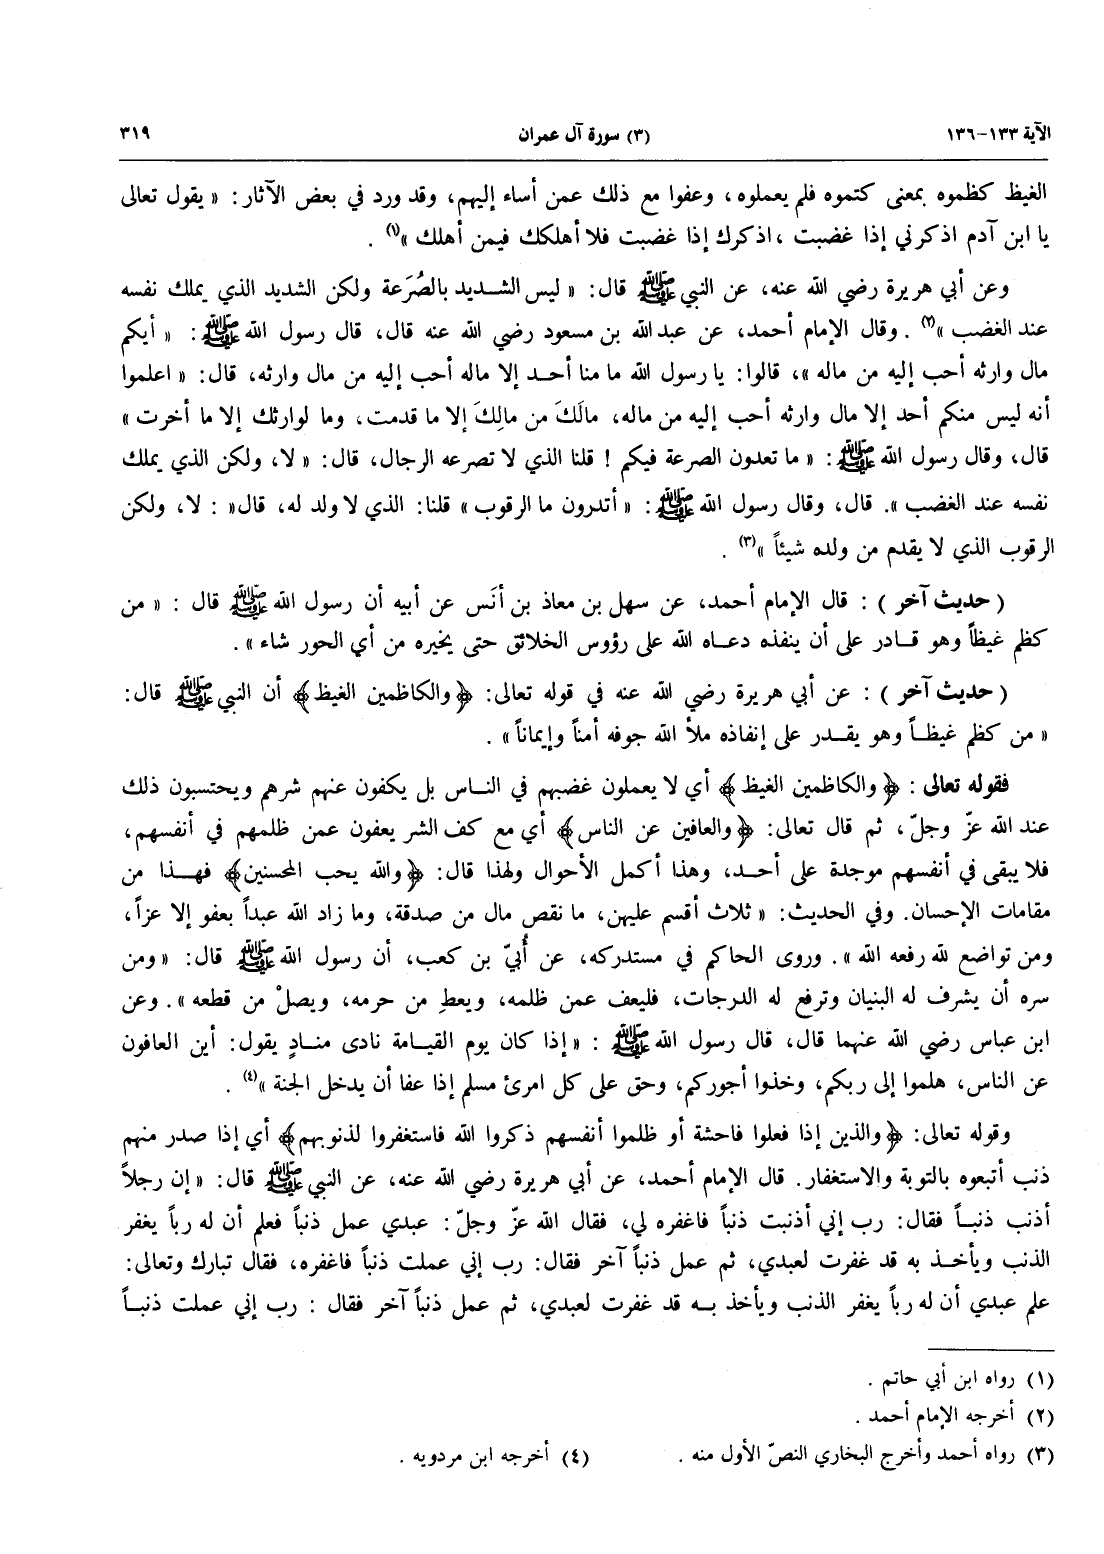 الآية ١٣٣-١٣٦ (٣) سورة آل عمران ٣١٩
الغيظ كظموه بمعنى كتموه فلم يعملوه، وعفوا مع ذلك عمن أساء إليهم، وقد ورد في بعض الآثار: « يقول تعالى
يا ابن آدم اذكرني إذا غضبت ، اذكرك إذا غضبت فلا أهلكك فيمن أهلك »(١) .
وعن أبي هريرة رضي الله عنه، عن النبي ﷺ قال: « ليس الشديد بالصُرَعة ولكن الشديد الذي يملك نفسه
عند الغضب »(٢) . وقال الإمام أحمد، عن عبد الله بن مسعود رضي الله عنه قال، قال رسول الله ﷺ : « أيكم
مال وارثه أحب إليه من ماله »، قالوا: يا رسول الله ما منا أحد إلا ماله أحب إليه من مال وارثه، قال: « اعلموا
أنه ليس منكم أحد إلا مال وارثه أحب إليه من ماله، مالَكَ من مالِكَ إلا ما قدمت، وما لوارثك إلا ما أخرت »
قال، وقال رسول الله ﷺ : « ما تعدون الصرعة فيكم ! قلنا الذي لا تصرعه الرجال، قال: « لا، ولكن الذي يملك
نفسه عند الغضب ». قال، وقال رسول الله ﷺ : « أتدرون ما الرقوب » قلنا: الذي لا ولد له، قال« : لا، ولكن
الرقوب الذي لا يقدم من ولده شيئاً »(٣) .
( حديث آخر ) : قال الإمام أحمد، عن سهل بن معاذ بن أنَس عن أبيه أن رسول الله ﷺ قال : « من
كظم غيظاً وهو قادر على أن ينفذه دعاه الله على رؤوس الخلائق حتى يخيره من أي الحور شاء » .
( حديث آخر ) : عن أبي هريرة رضي الله عنه في قوله تعالى: ﴿والكاظمين الغيظ﴾ أن النبي ﷺ قال:
« من كظم غيظاً وهو يقدر على إنفاذه ملأ الله جوفه أمناً وإيماناً » .
فقوله تعالى : ﴿ والكاظمين الغيظ ﴾ أي لا يعملون غضبهم في الناس بل يكفون عنهم شرهم ويحتسبون ذلك
عند الله عزّ وجلّ، ثم قال تعالى: ﴿والعافين عن الناس﴾ أي مع كف الشر يعفون عمن ظلمهم في أنفسهم،
فلا يبقى في أنفسهم موجدة على أحد، وهذا أكمل الأحوال ولهذا قال: ﴿والله يحب المحسنين﴾ فهذا من
مقامات الإحسان. وفي الحديث: « ثلاث أقسم عليهن، ما نقص مال من صدقة، وما زاد الله عبداً بعفو إلا عزاً،
ومن تواضع لله رفعه الله ». وروى الحاكم في مستدركه، عن أُبيّ بن كعب، أن رسول الله ﷺ قال: « ومن
سره أن يشرف له البنيان وترفع له الدرجات، فليعف عمن ظلمه، ويعطِ من حرمه، ويصلْ من قطعه ». وعن
ابن عباس رضي الله عنهما قال، قال رسول الله ﷺ : « إذا كان يوم القيامة نادى منادٍ يقول: أين العافون
عن الناس، هلموا إلى ربكم، وخذوا أجوركم، وحق على كل امرئ مسلم إذا عفا أن يدخل الجنة »(٤) .
وقوله تعالى: ﴿ والذين إذا فعلوا فاحشة أو ظلموا أنفسهم ذكروا الله فاستغفروا لذنوبهم﴾ أي إذا صدر منهم
ذنب أتبعوه بالتوبة والاستغفار. قال الإمام أحمد، عن أبي هريرة رضي الله عنه، عن النبي ﷺ قال: « إن رجلاً
أذنب ذنباً فقال: رب إني أذنبت ذنباً فاغفره لي، فقال الله عزّ وجلّ: عبدي عمل ذنباً فعلم أن له رباً يغفر
الذنب ويأخذ به قد غفرت لعبدي، ثم عمل ذنباً آخر فقال: رب إني عملت ذنباً فاغفره، فقال تبارك وتعالى:
علم عبدي أن له رباً يغفر الذنب ويأخذ به قد غفرت لعبدي، ثم عمل ذنباً آخر فقال : رب إني عملت ذنباً
(١) رواه ابن أبي حاتم .
(٢) أخرجه الإمام أحمد .
(٣) رواه أحمد وأخرج البخاري النصّ الأول منه . (٤) أخرجه ابن مردويه .